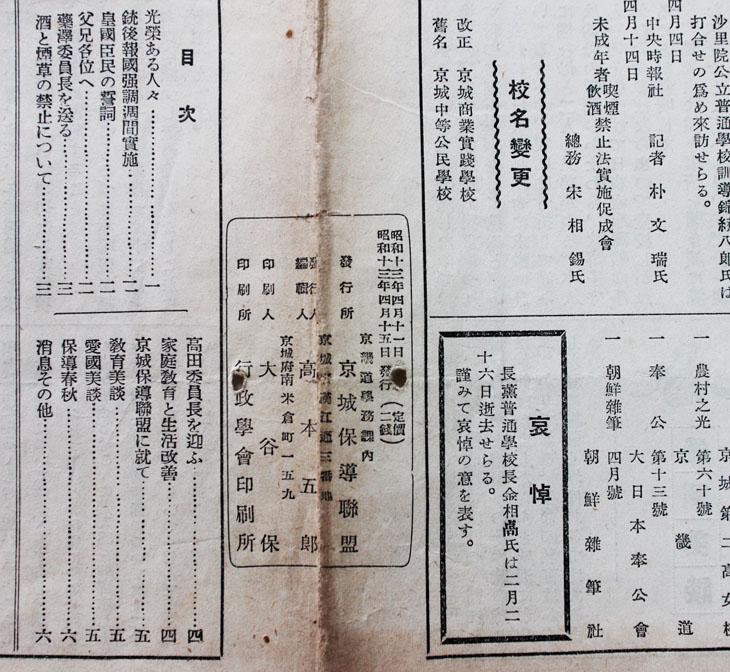 沙里院公立普通學校訓導錦織八郎氏は
打合せの爲め來訪せらる。
四月四日
中央時報社 記者 朴文瑞氏
四月十四日
未成年者喫煙飲酒禁止法實施促成會
總務 宋相錫氏
校名變更
改正 京城商業實踐學校
舊名 京城中等公民學校
京城第二高女校
一 農村之光 第六十號
京畿道
一 奉公 第十三號
大日本奉公會
一 朝鮮雜筆 四月號
朝鮮雜筆社
哀悼
長薰普通學校長金相卨氏は二月二
十六日逝去せらる。
謹みて哀悼の意を表す。
昭和十三年四月十一日
昭和十三年四月十五日發行 (定價二錢)
京畿道學務課內
發行所 京城保導聯盟
京城府漢江通三番地
發行人
編輯人 高本五郎
京城府南米倉町一五九
印刷人 大谷保
印刷所 行政學會印刷所
目次
光榮ある人々…………一
銃後報國强調週間實施…………二
皇國臣民の誓詞…………二
父兄各位へ…………二
藥澤委員長を送る…………三
酒と煙草の禁止について…………三
高田委員長を迎ふ…………四
家庭敎育と生活改善…………四
京城保導聯盟に就て…………五
敎育美談…………五
愛國美談…………五
保導春秋…………六
消息その他…………六